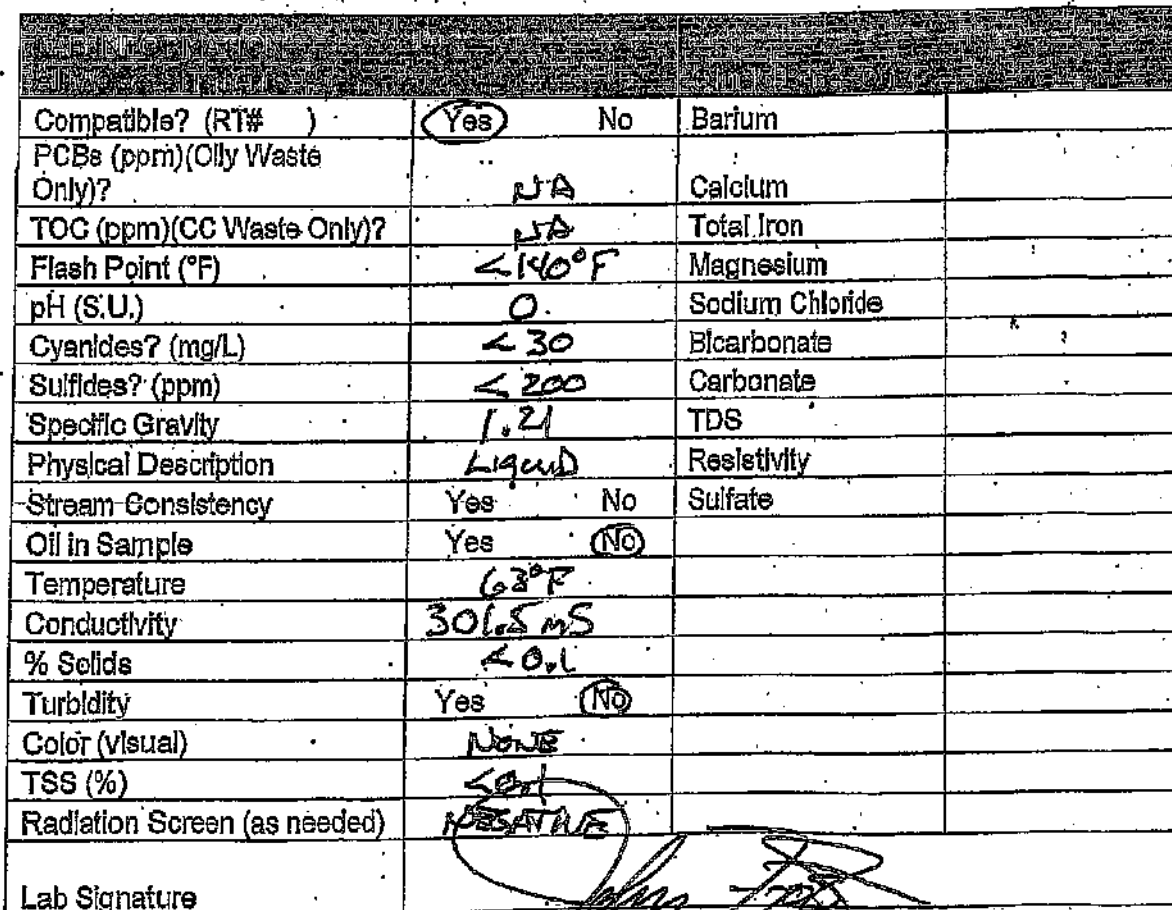 LAB INFORMATION
Compatible? (RT# ) Yes No Barium
PCBs (ppm)(Oily Waste
Only)? NA Calcium
TOC (ppm)(CC Waste Only)? NA Total Iron
Flash Point (°F) <140°F Magnesium
pH (S.U.) 0. Sodium Chloride
Cyanides? (mg/L) <30 Bicarbonate
Sulfides? (ppm) <200 Carbonate
Specific Gravity 1.21 TDS
Physical Description Liquid Resistivity
Stream Consistency Yes No Sulfate
Oil in Sample Yes No
Temperature 68°F
Conductivity 301.5 mS
% Solids <0.1
Turbidity Yes No
Color (visual) NONE
TSS (%) <0.1
Radiation Screen (as needed) NEGATIVE
Lab Signature